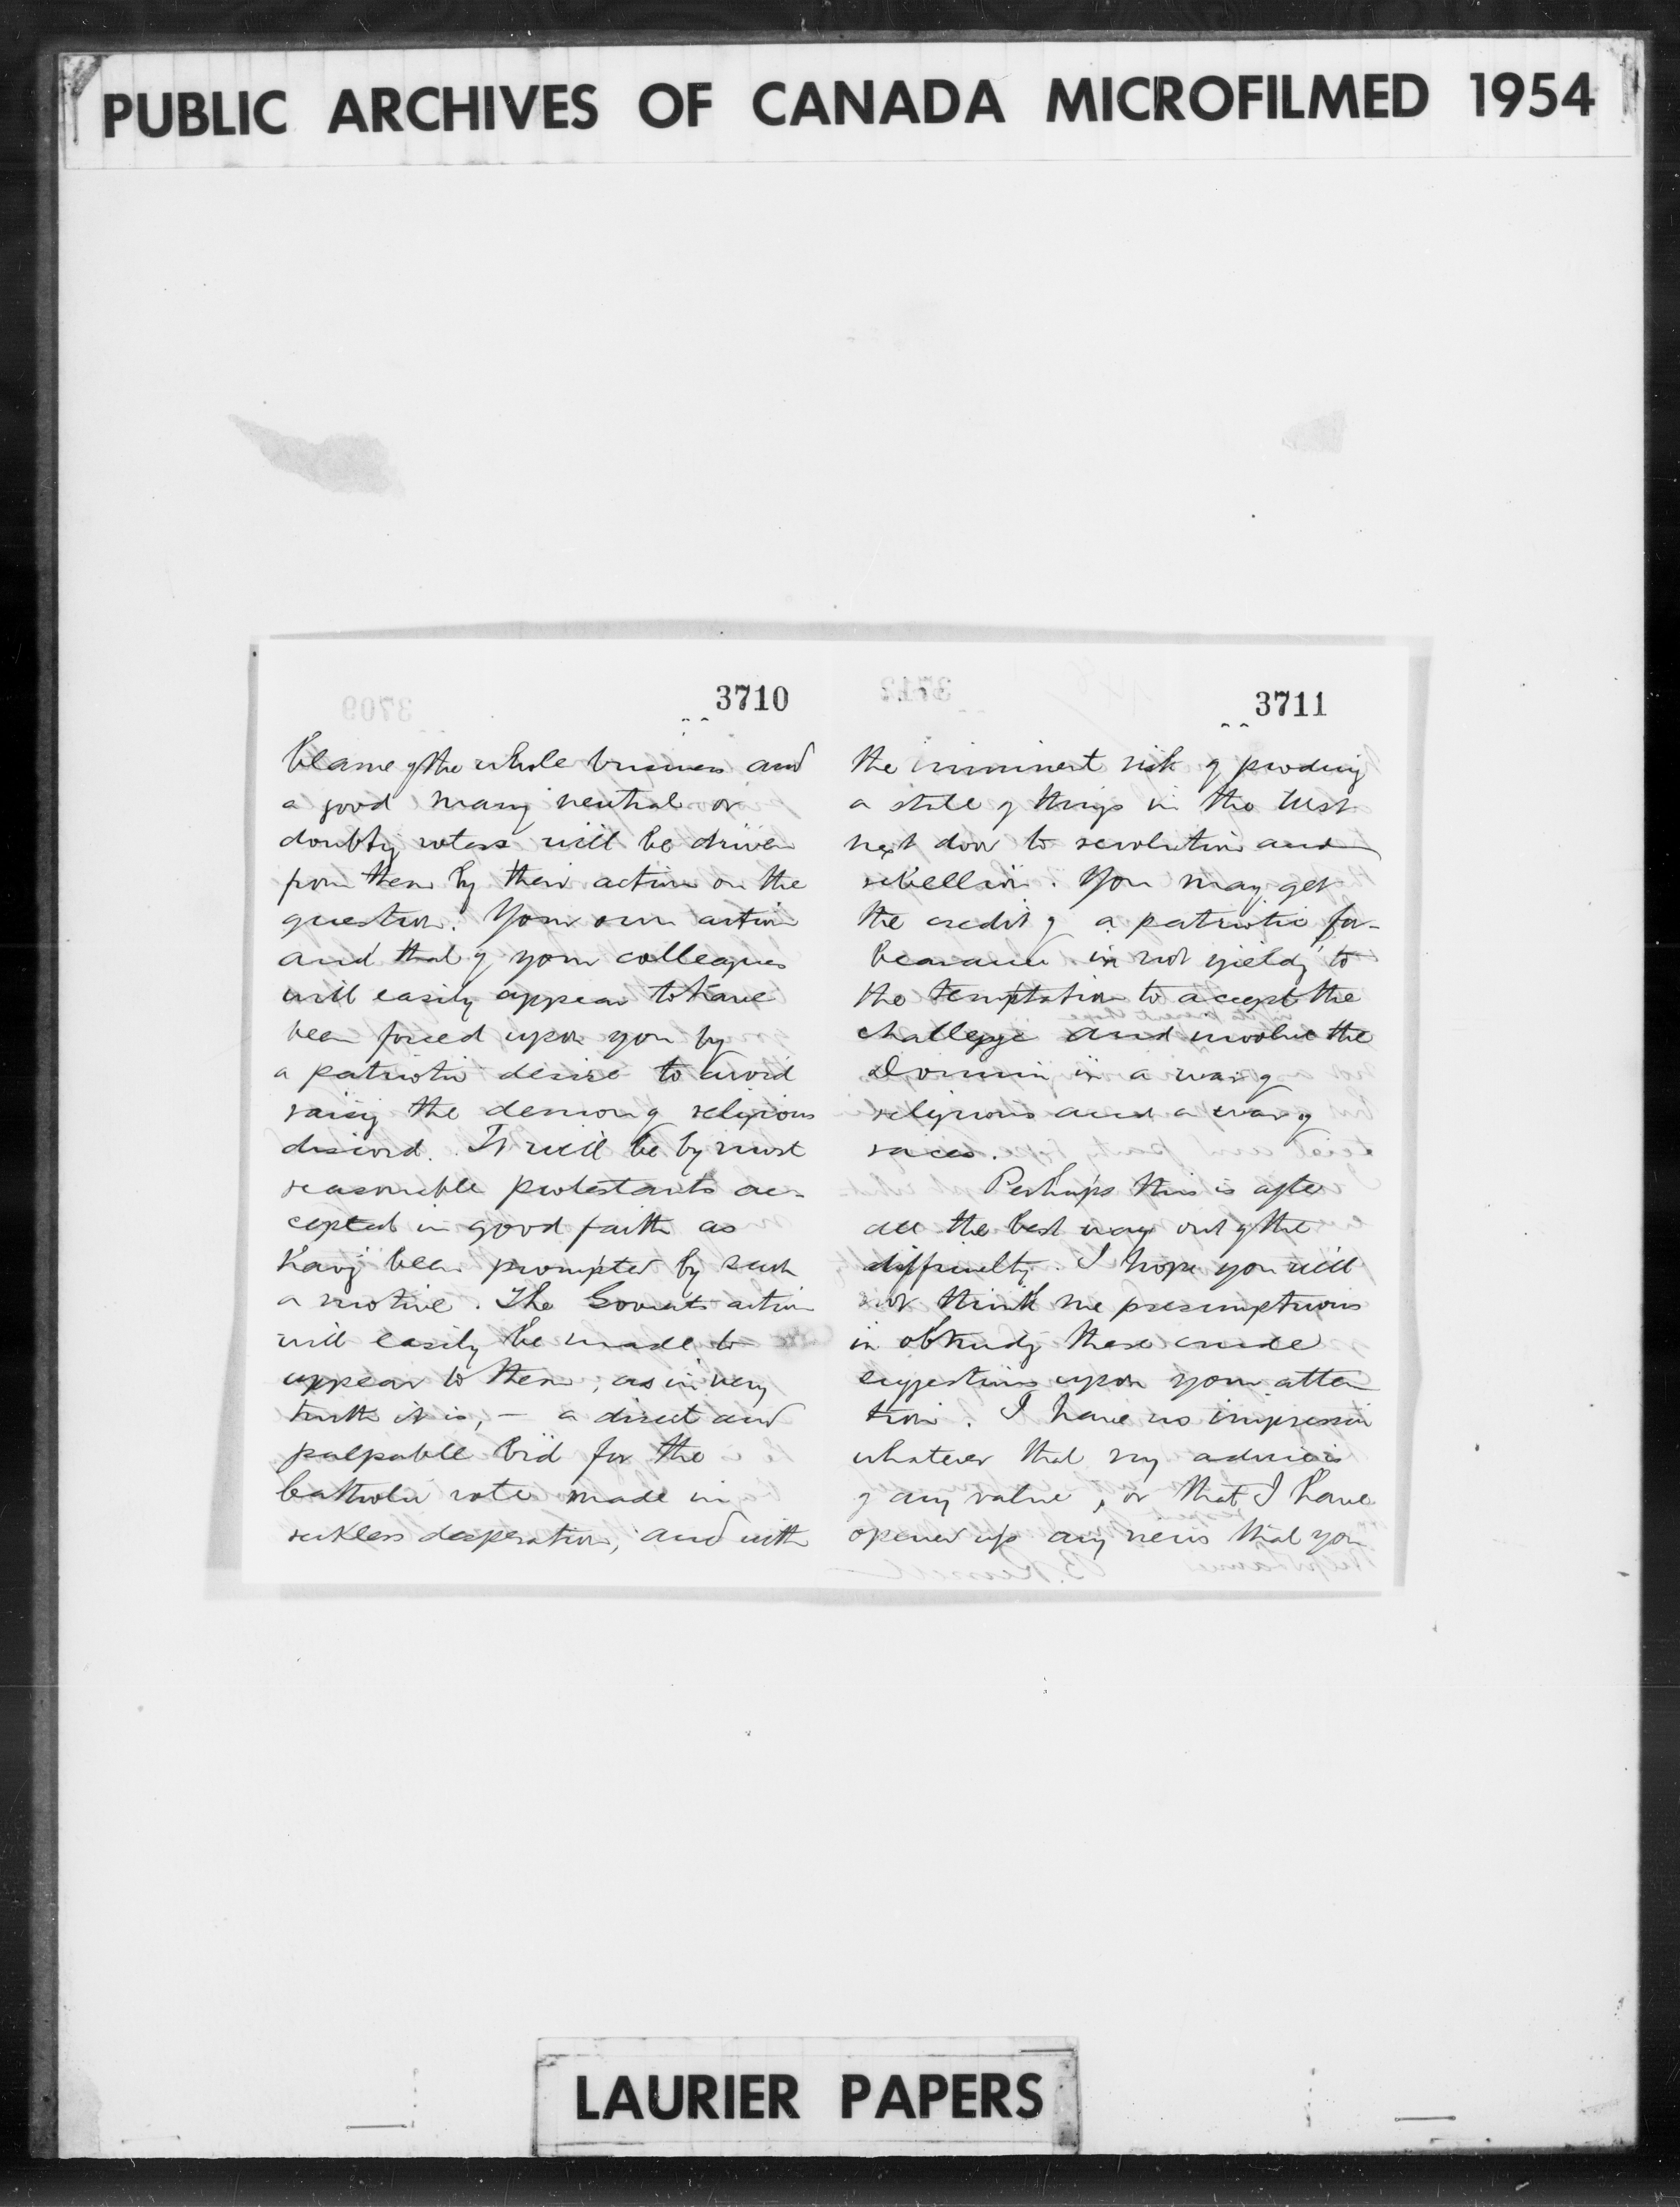 PUBLIC ARCHIVES OF CANADA MICROFILMED 1954
3710
blame of the whole business and
a good many neutral or
doubtful voters will be driven
from them by their action on the
question. Your own action
and that of your colleagues
will easily appear to have
been forced upon you by
a patriotic desire to avoid
raising the demon of religious
discord. It will be by most
reasonable protestants ac-
cepted in good faith as
having been prompted by such
a motive. The Governts action
will easily be made to
appear to them, as in very
truth it is, — a direct and
palpable bid for the
Catholic vote made in
reckless desperation, and with
3711
the imminent risk of producing
a state of things in the West
next door to revolution and
rebellion. You may get
the credit of a patriotic for-
bearance in not yielding to
the temptation to accept the
challenge and involve the
Dominion in a war of
religions and a war of
races.
Perhaps this is after
all the best way out of the
difficulty. I hope you will
not think me presumptuous
in obtruding these crude
suggestions upon your atten
tion. I have no impression
whatever that my advice is
of any value, or that I have
opened up any views that you
LAURIER PAPERS